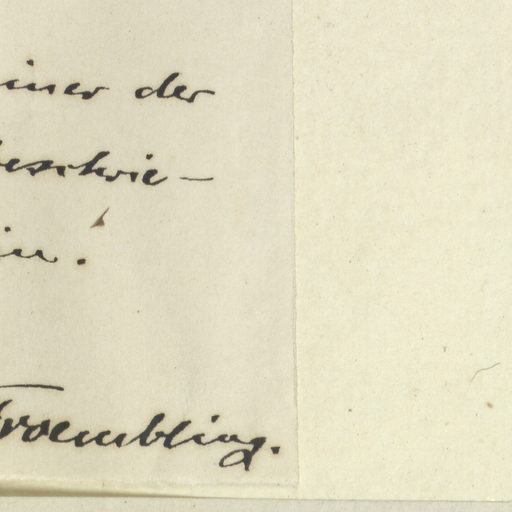 einer der
beschrie-
in.
Froembling.